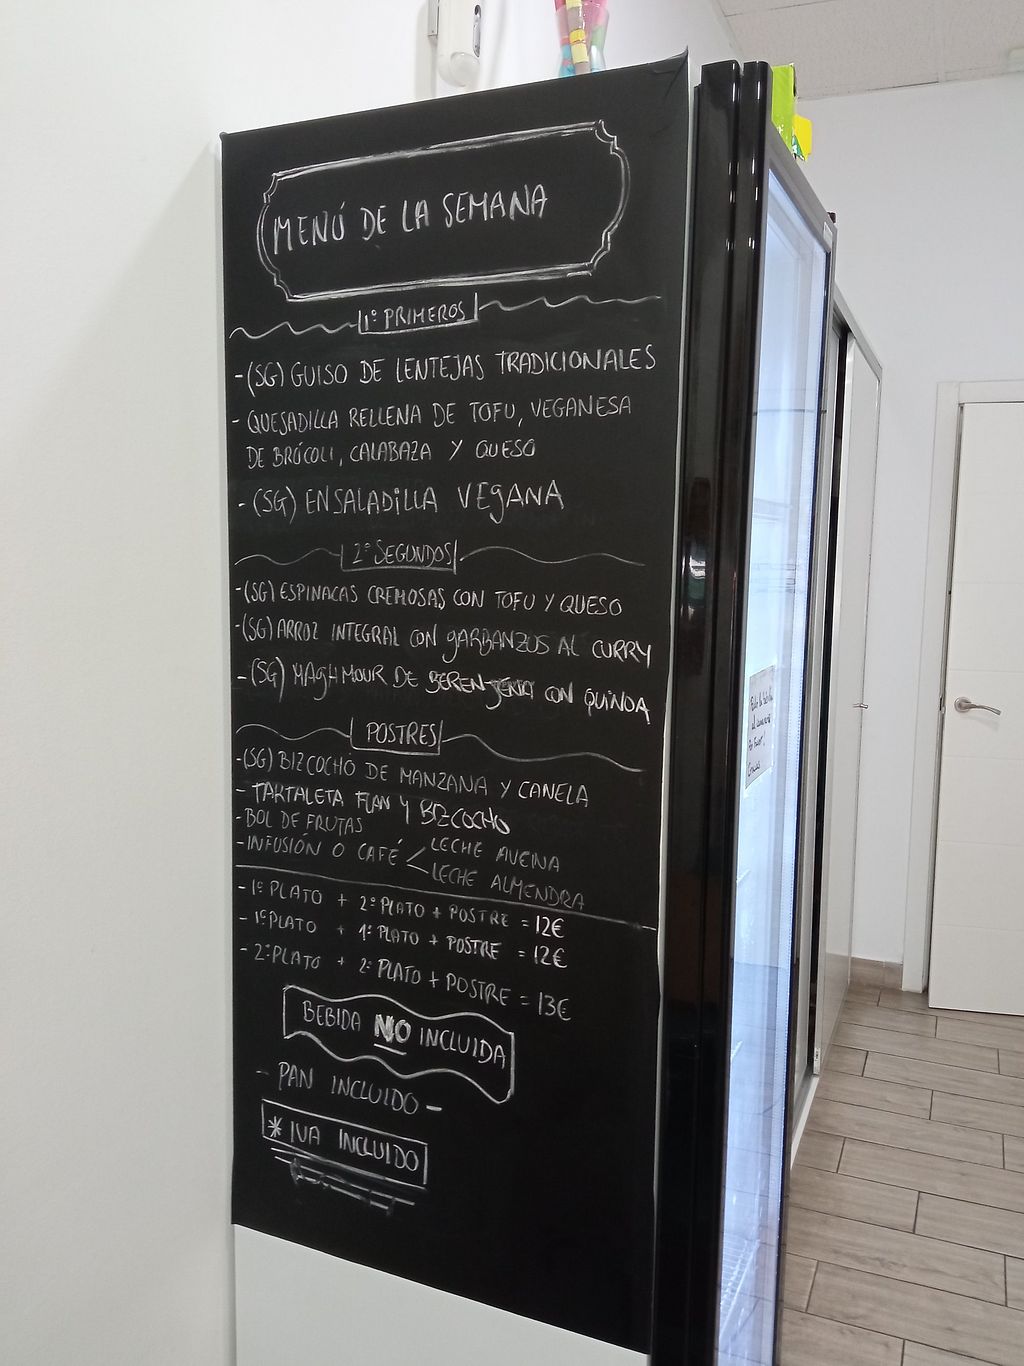 MENÚ DE LA SEMANA
1º PRIMEROS
- (SG) GUISO DE LENTEJAS TRADICIONALES
- QUESADILLA RELLENA DE TOFU, VEGANESA
DE BRÓCOLI, CALABAZA Y QUESO
- (SG) ENSALADILLA VEGANA
2º SEGUNDOS
- (SG) ESPINACAS CREMOSAS CON TOFU Y QUESO
- (SG) ARROZ INTEGRAL CON GARBANZOS AL CURRY
- (SG) MAGHMOUR DE BERENJENA CON QUINOA
POSTRES
- (SG) BIZCOCHO DE MANZANA Y CANELA
- TARTALETA FLAN Y BIZCOCHO
- BOL DE FRUTAS
- INFUSIÓN O CAFÉ < LECHE AVENA
LECHE ALMENDRA
- 1º PLATO + 2º PLATO + POSTRE = 12€
- 1º PLATO + 1º PLATO + POSTRE = 12€
- 2º PLATO + 2º PLATO + POSTRE = 13€
BEBIDA NO INCLUIDA
- PAN INCLUIDO -
* IVA INCLUIDO